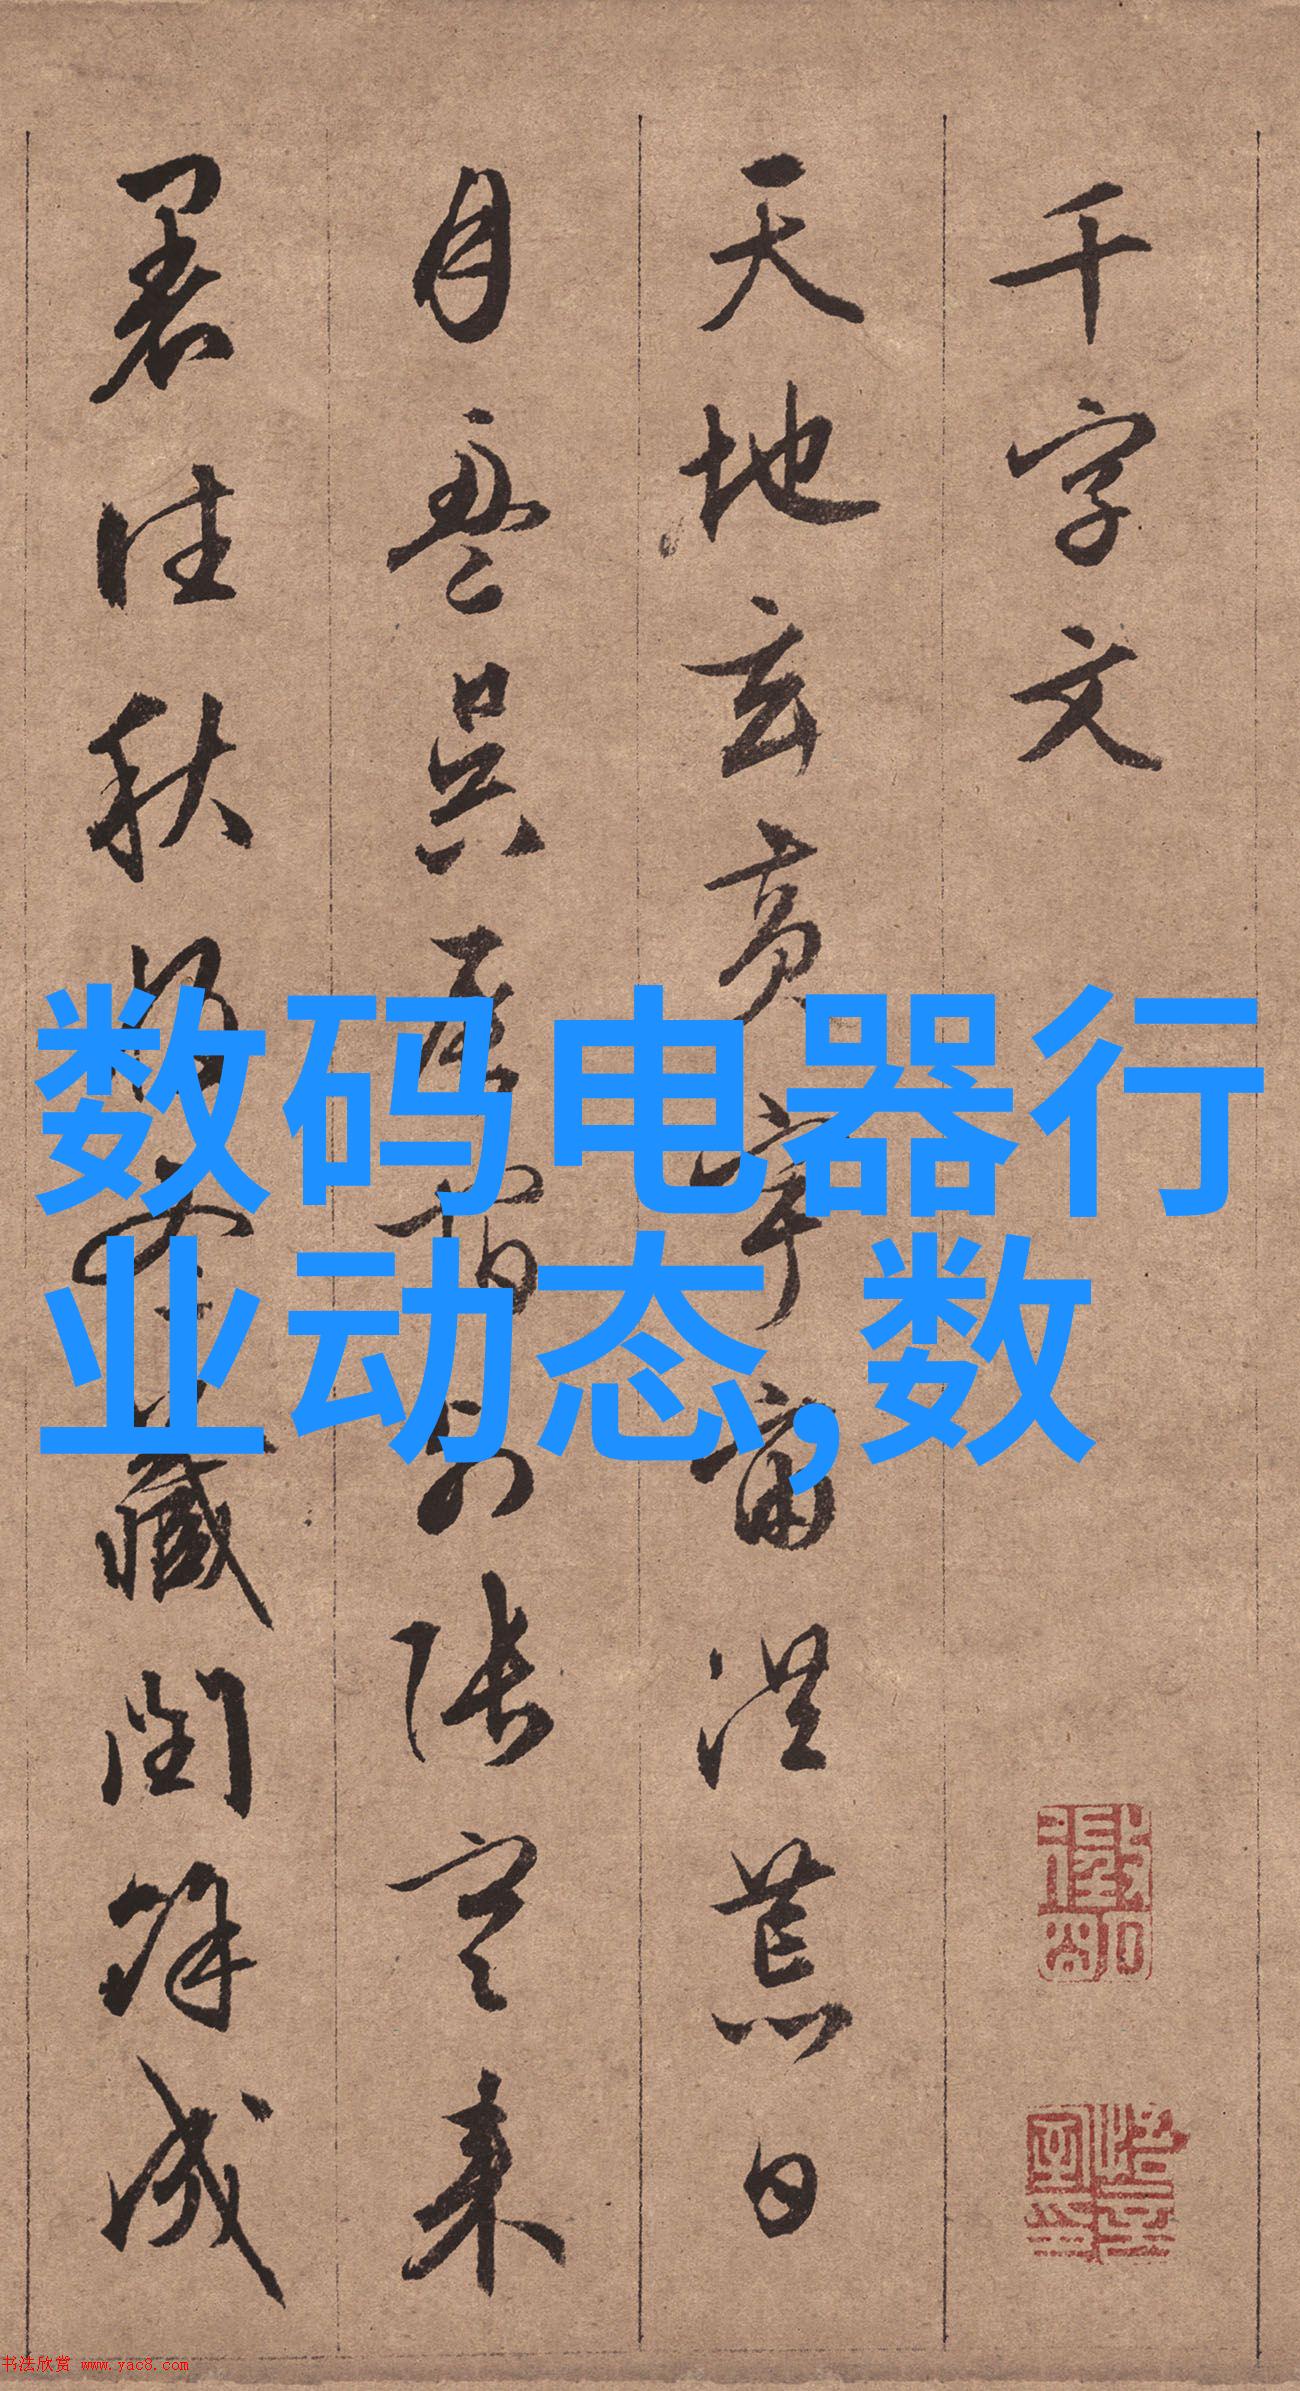 千字文
天地玄黄宇宙洪荒日
月盈昃辰宿列张寒来
暑往秋收冬藏闰馀成
数码电器行
业动态,数
书法欣赏 www.yac8.com